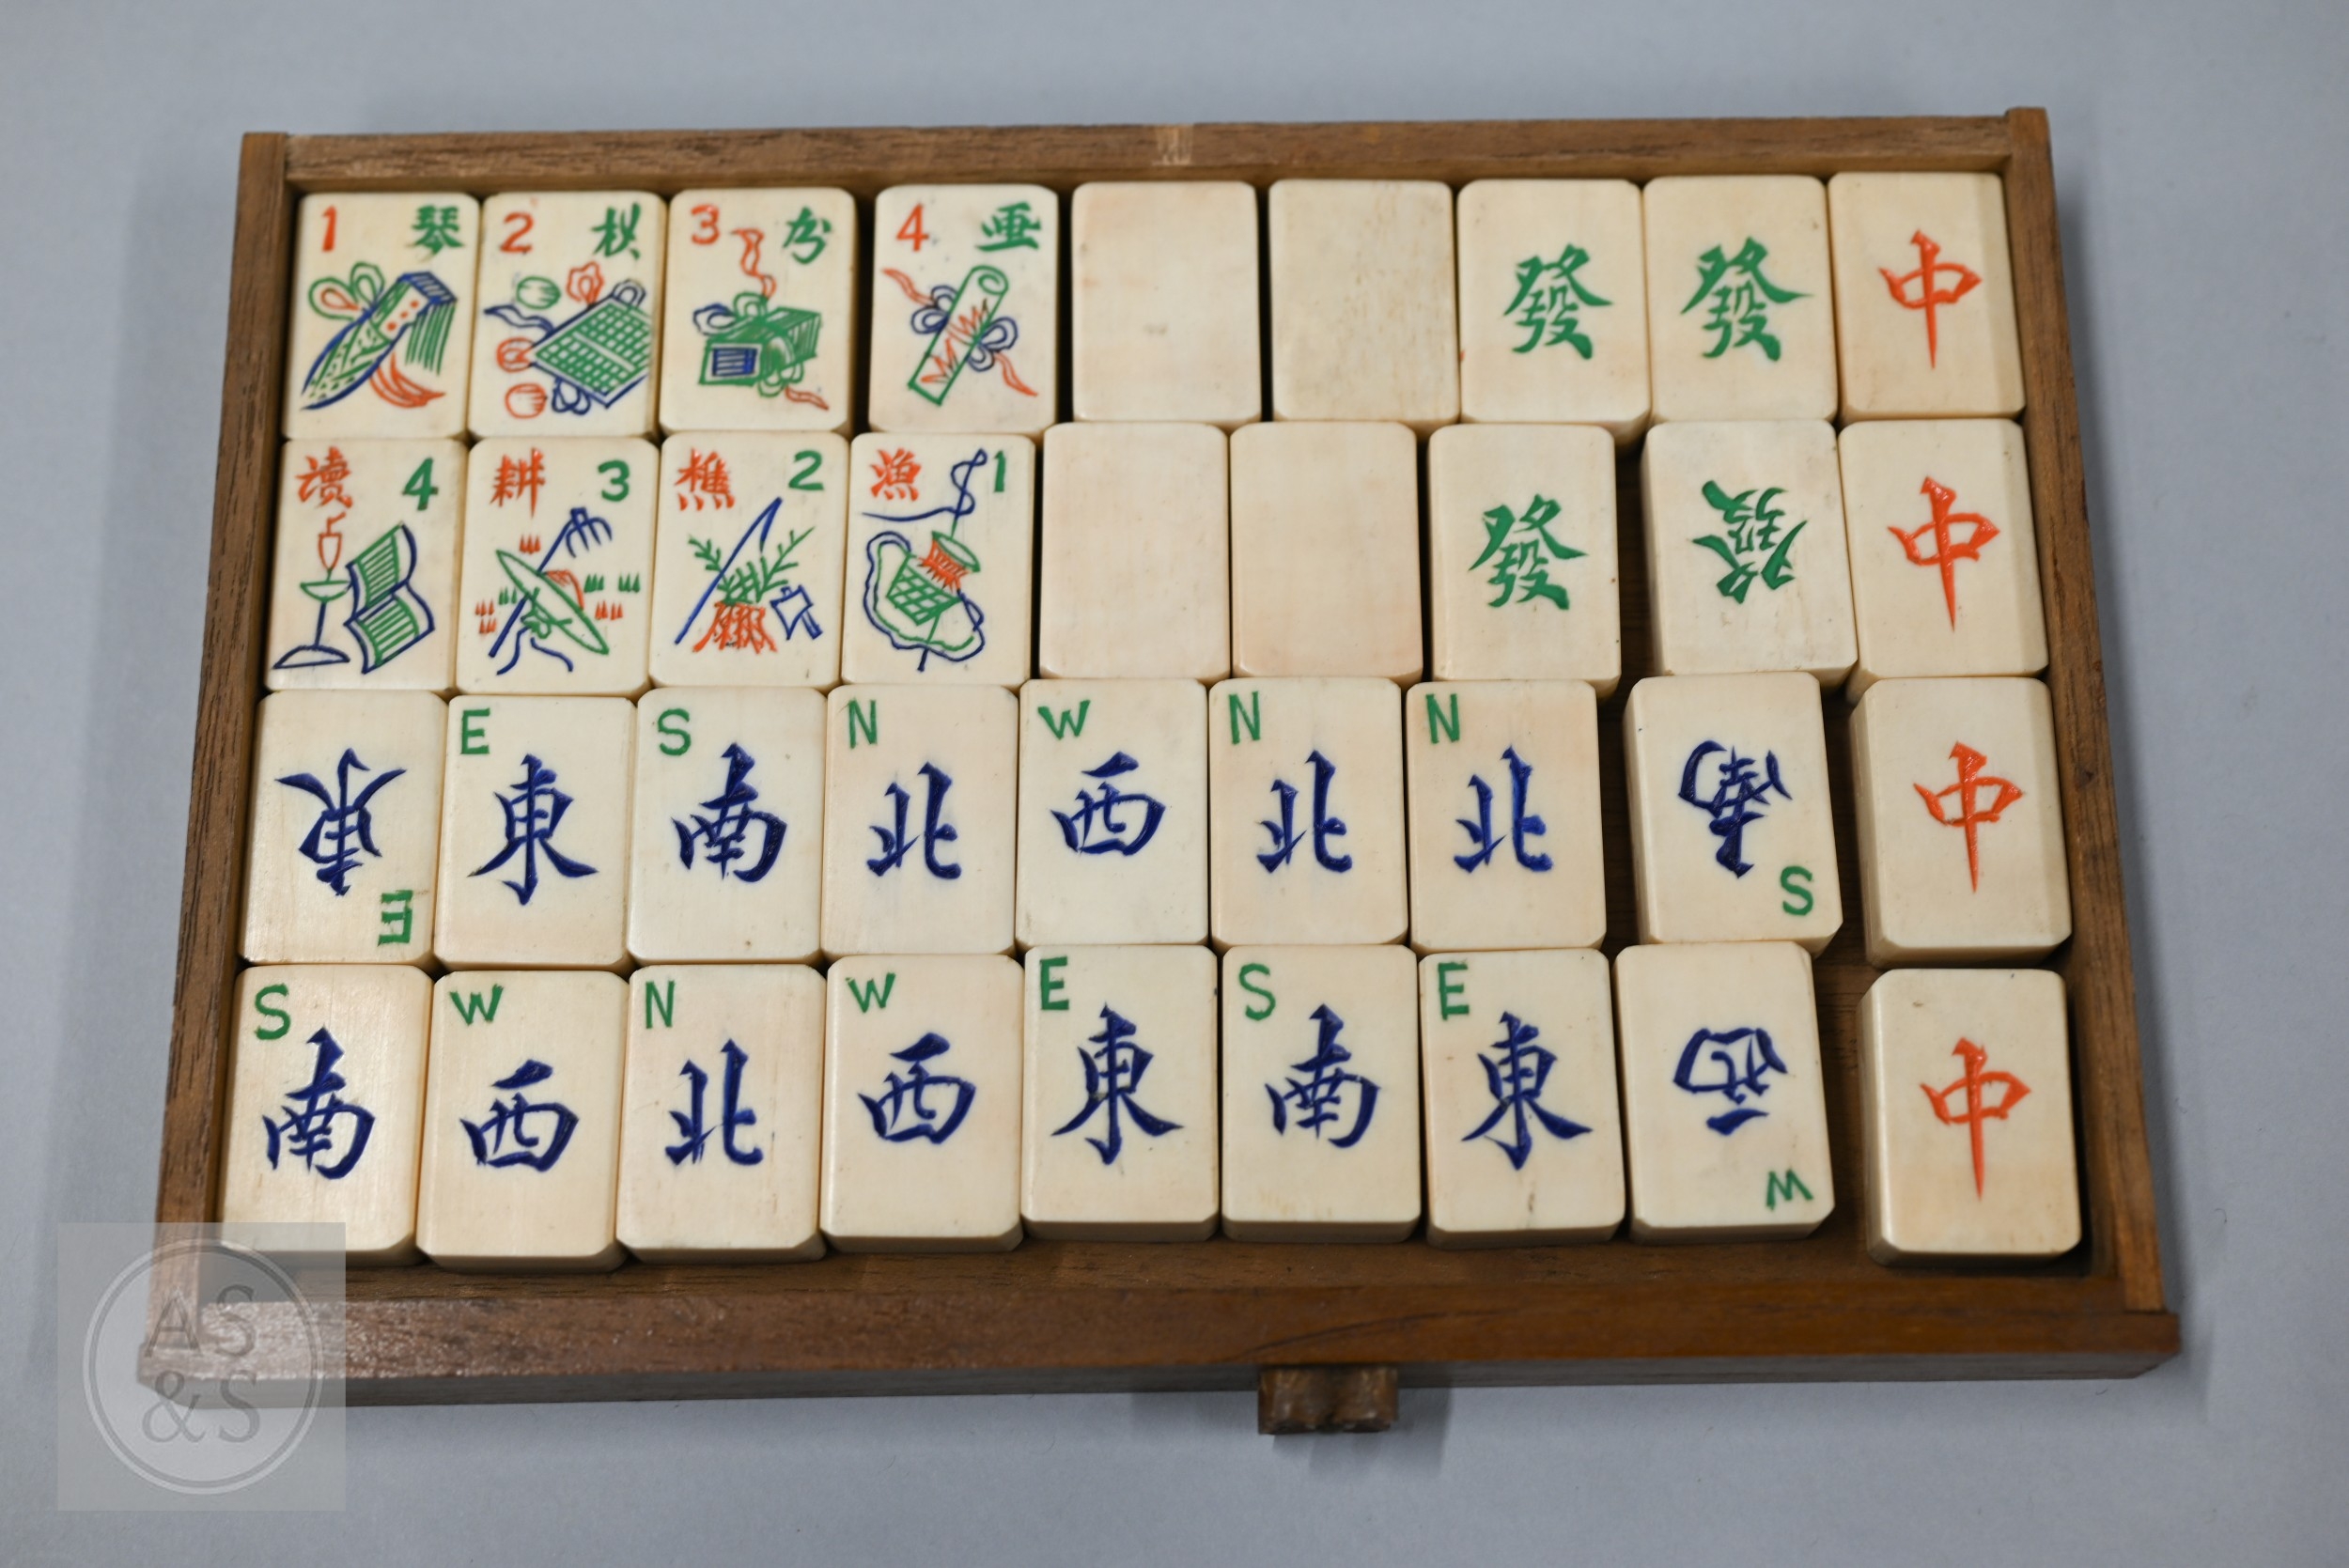 1 琴 2 棋 3 4 畫 發 發 中
读 4 耕 3 樵 2 漁 1 發 發 中
東 E E 東 S 南 N 北 W 西 N 北 N 北 南 S 中
S 南 W 西 N 北 W 西 E 東 S 南 E 東 西 W 中
AS
&S